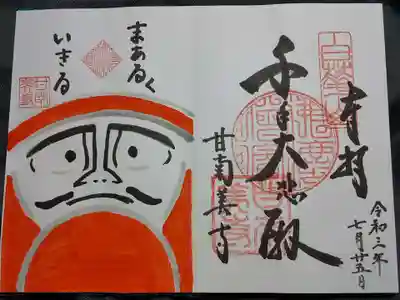 奉拝
千手大悲殿
甘南美寺
令和三年
七月廿五日
まあるく
いきる